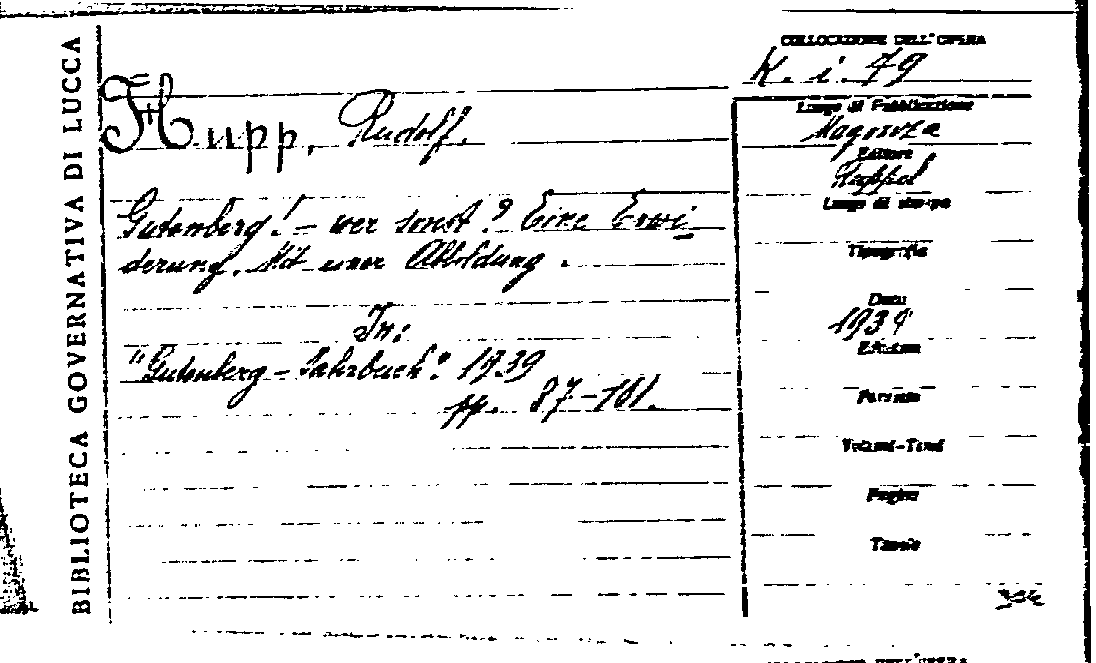 BIBLIOTECA GOVERNATIVA DI LUCCA
COLLOCAZIONE DELL'OPERA
K. i. 79
Hupp, Rudolf.
Gutenberg! – wer sonst? Eine Erwi
derung. Mit einer Abbildung.
In:
"Gutenberg – Jahrbuch". 1939
pp. 87–101.
Luogo di Pubblicazione
Magonza
Editore
Luogo di stampa
Tipografia
Data
1939
Edizione
Formato
Volumi-Tomi
Pagine
Tavole
DELL'OPERA